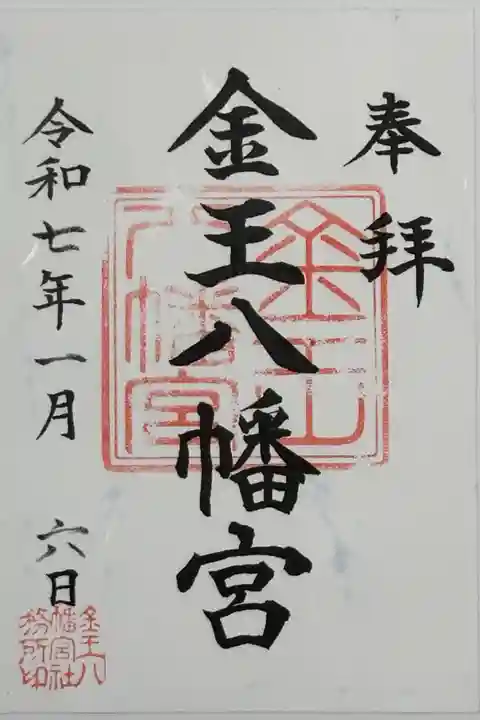 奉拝
金王八幡宮
令和七年一月 六日
金王
八幡宮
金王八
幡宮社
務所印